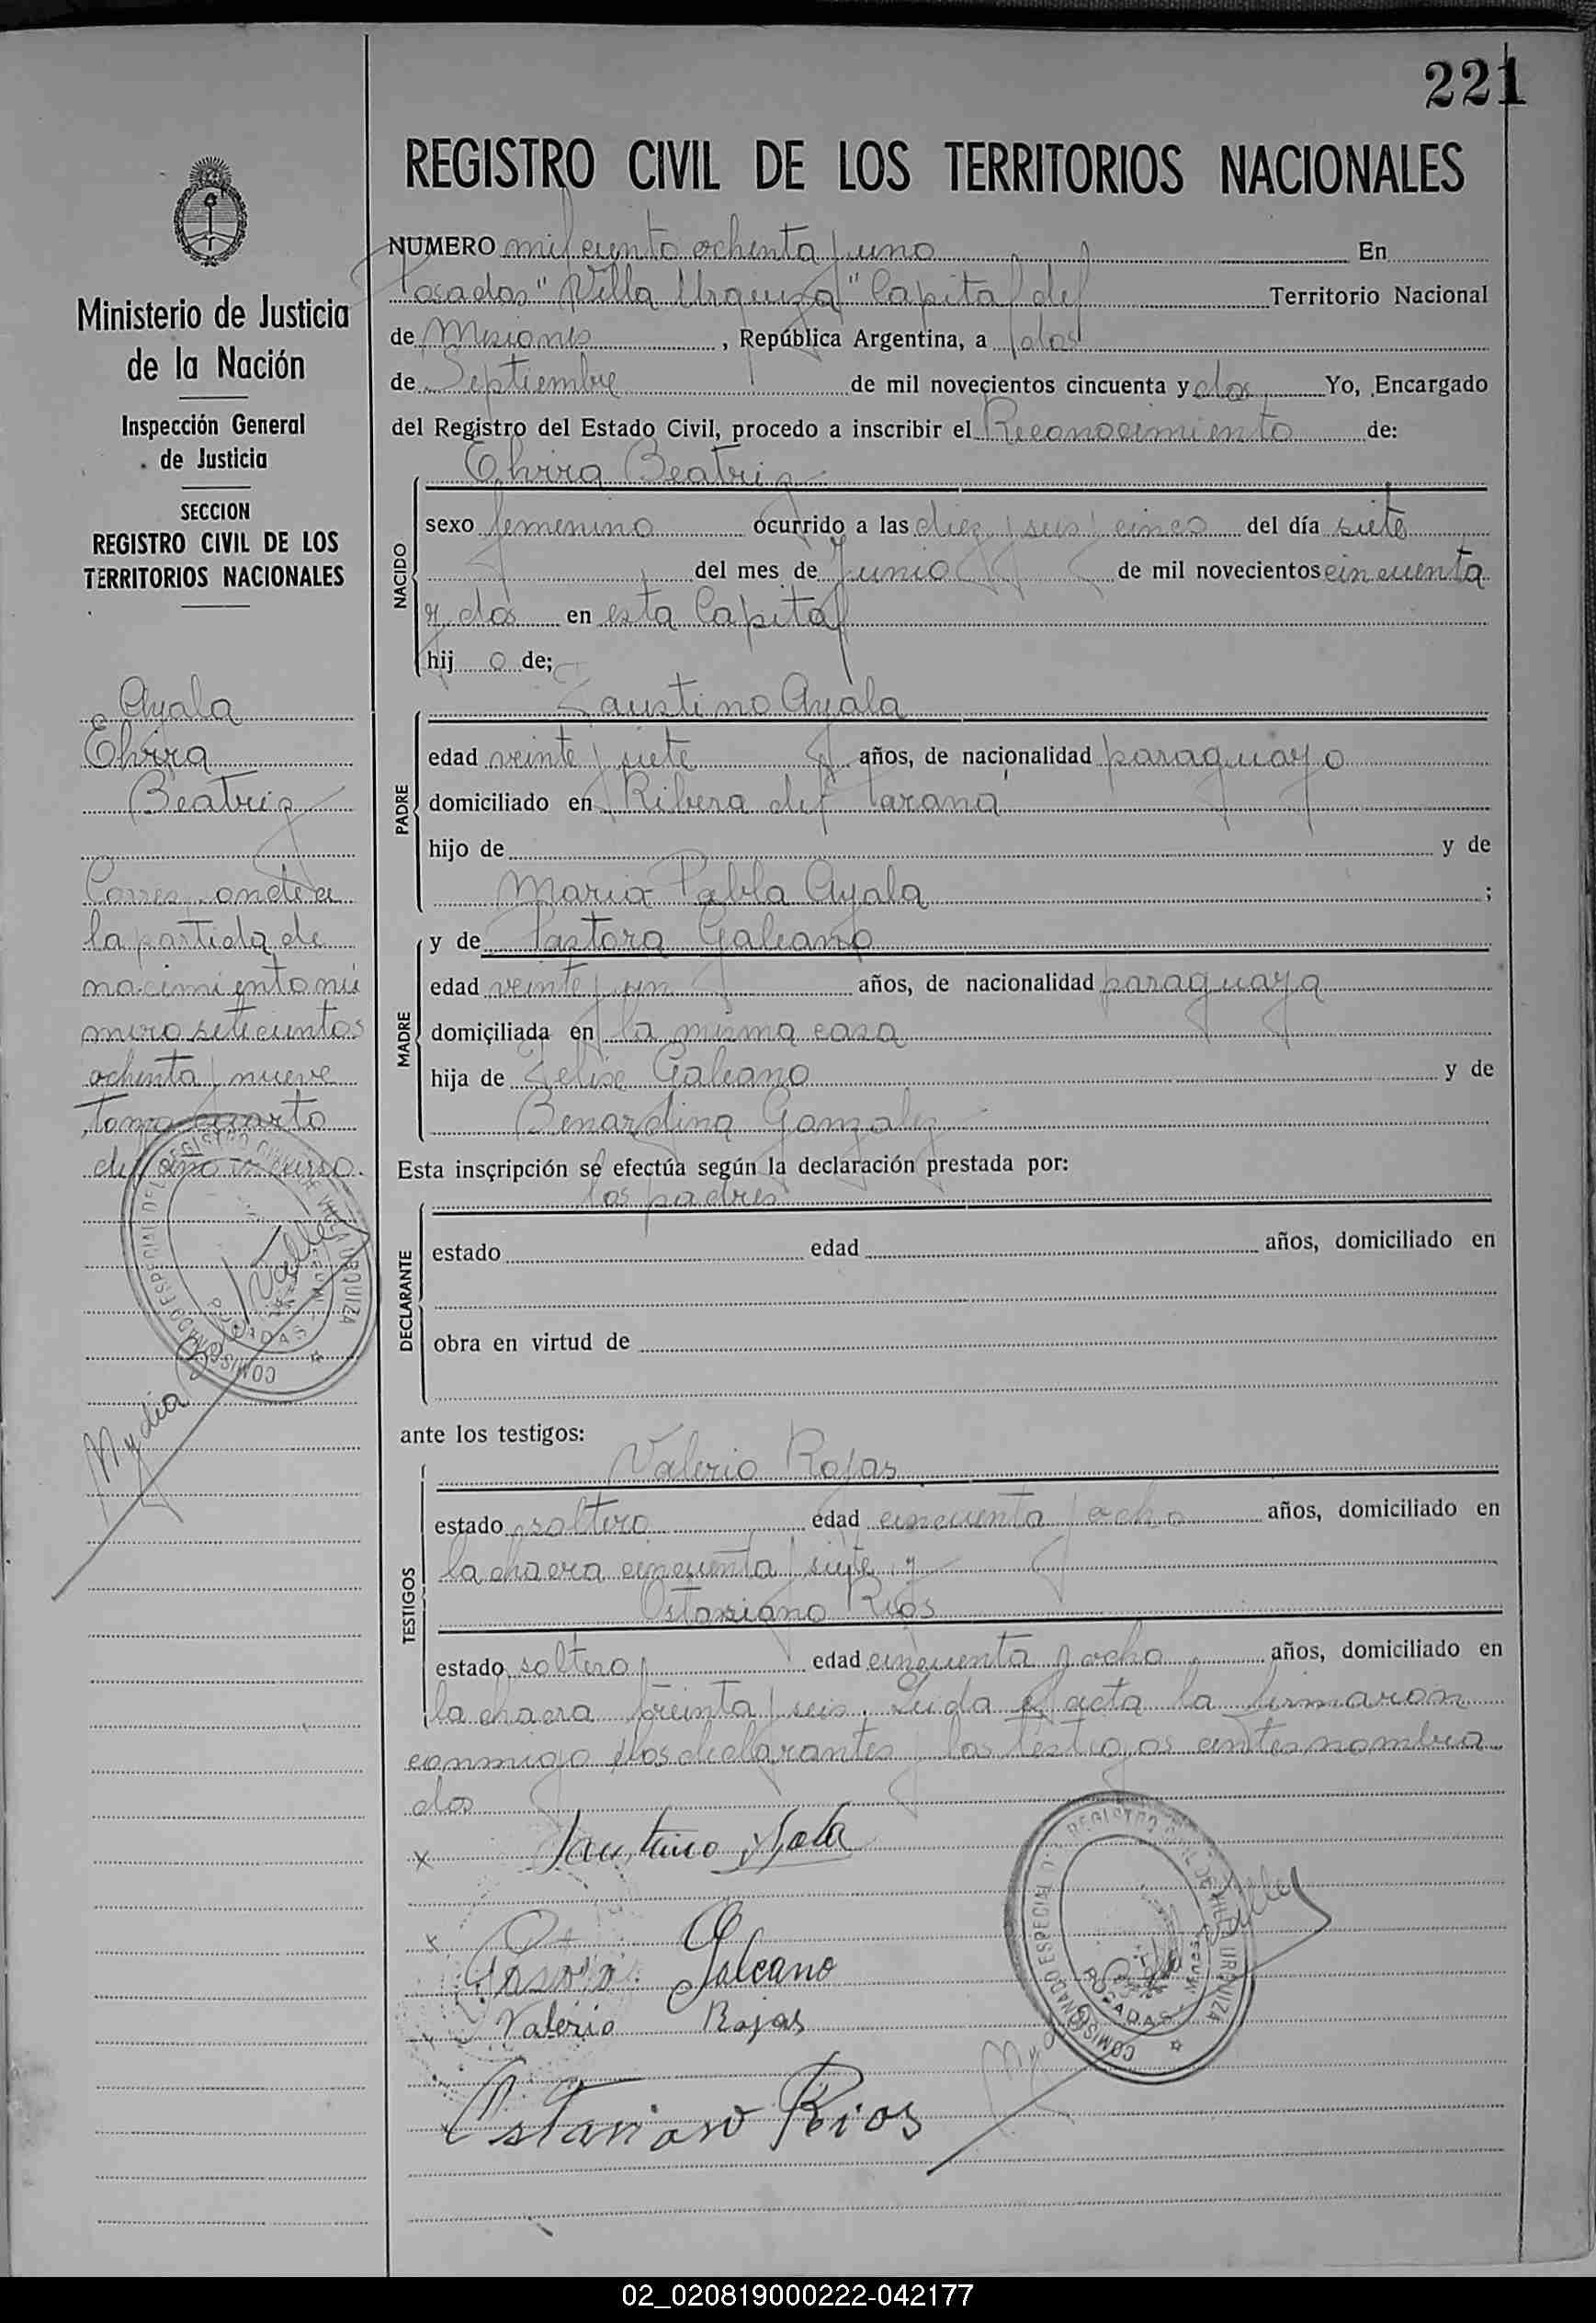 221
REGISTRO CIVIL DE LOS TERRITORIOS NACIONALES
NUMERO mil ciento ochenta y uno En
Posadas "Villa Urquiza" Capital del Territorio Nacional
de Misiones, República Argentina, a los dos
de Septiembre de mil novecientos cincuenta y dos Yo, Encargado
del Registro del Estado Civil, procedo a inscribir el Reconocimiento de:
Elvira Beatriz
NACIDO
sexo femenino ocurrido a las diez y seis y cinco del día siete
del mes de Junio de mil novecientos cincuenta
y dos en esta Capital
hij o de;
PADRE
Faustino Ayala
edad veinte y siete años, de nacionalidad paraguayo
domiciliado en Ribera del Parana
hijo de y de
Maria Pabla Ayala ;
MADRE
y de Pastora Galeano
edad veinte y un años, de nacionalidad paraguaya
domiciliada en la misma casa
hija de Felix Galeano y de
Benardina Gonzalez
Esta inscripción se efectúa según la declaración prestada por:
los padres
DECLARANTE
estado edad años, domiciliado en
obra en virtud de
ante los testigos:
TESTIGOS
Valerio Rojas
estado soltero edad cincuenta y ocho años, domiciliado en
la chacra cincuenta y siete y
Ostariano Rios
estado soltero edad cincuenta y ocho años, domiciliado en
la chacra treinta y seis. Leida el acta la firmaron
conmigo los declarantes y los testigos antes nombra
dos
x Faustino Ayala
x Galeano
Valerio Rojas
Rios
REGISTRO CIVIL DE VILLA URQUIZA
COMISIONADO ESPECIAL
POSADAS
Ministerio de Justicia
de la Nación
Inspección General
de Justicia
SECCION
REGISTRO CIVIL DE LOS
TERRITORIOS NACIONALES
Ayala
Elvira
Beatriz
Corresponde a
la partida de
nacimiento nú
mero setecientos
ochenta y nueve
tomo cuarto
del año en curso.
COMISIONADO ESPECIAL DEL REGISTRO CIVIL DE VILLA URQUIZA
POSADAS
02_020819000222-042177